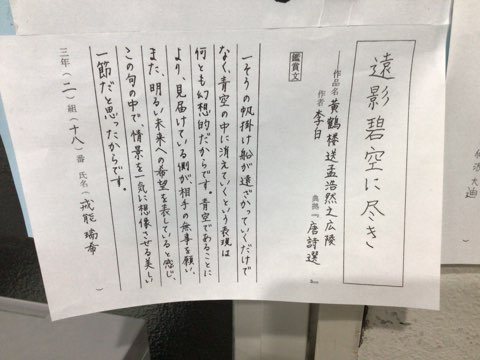 遠影碧空に尽き
作品名 黄鶴楼送孟浩然之広陵
作者 李白
典拠『唐詩選』
鑑賞文
一そうの帆掛け船が遠ざかっていくだけで
なく、青空の中に消えていくという表現は
何とも幻想的だからです。青空であることに
より、見届けている側が、相手の無事を願い、
また、明るい未来への希望を表していると感じ、
この句の中で、情景を一気に想像させる美しい
一節だと思ったからです。
三年(二)組(十八)番 氏名( 戎能 瑞希 )